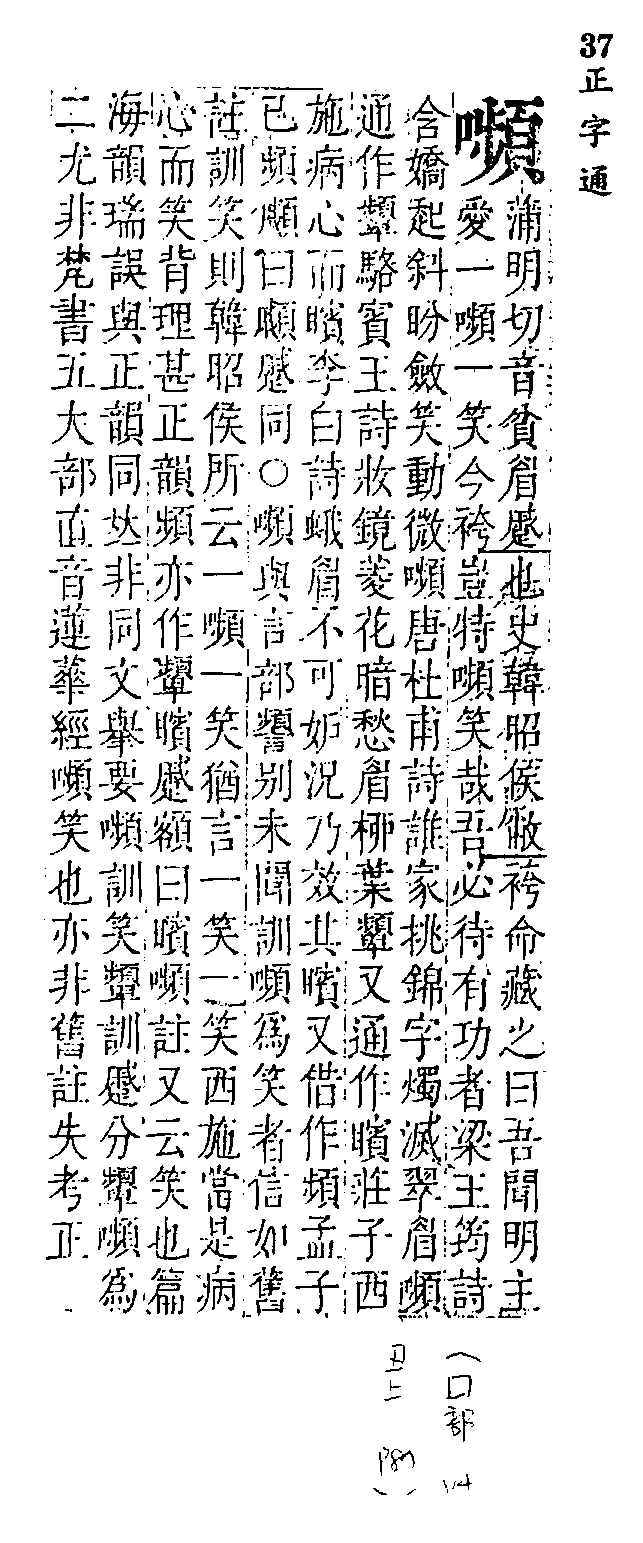 37 正字通
嚬
蒲明切音貧眉蹙也史韓昭侯敝袴命藏之曰吾聞明主
愛一嚬一笑今袴豈特嚬笑哉吾必待有功者梁王筠詩
含嬌起斜盼斂笑動微嚬唐杜甫詩誰家挑錦字燭滅翠眉嚬
通作顰駱賓王詩妝鏡菱花暗愁眉柳葉顰又通作矉莊子西
施病心而矉李白詩蛾眉不可妒況乃效其矉又借作頻孟子
已頻顣曰顣蹙同○嚬與言部別未聞訓嚬為笑者信如舊
註訓笑則韓昭侯所云一嚬一笑猶言一笑一笑西施當是病
心而笑背理甚正韻頻亦作顰矉蹙額曰矉嚬註又云笑也篇
海韻瑞誤與正韻同𠀤非同文舉要嚬訓笑顰訓蹙分顰嚬為
二尤非梵書五大部直音蓮華經嚬笑也亦非舊註失考正
(口部
丑上